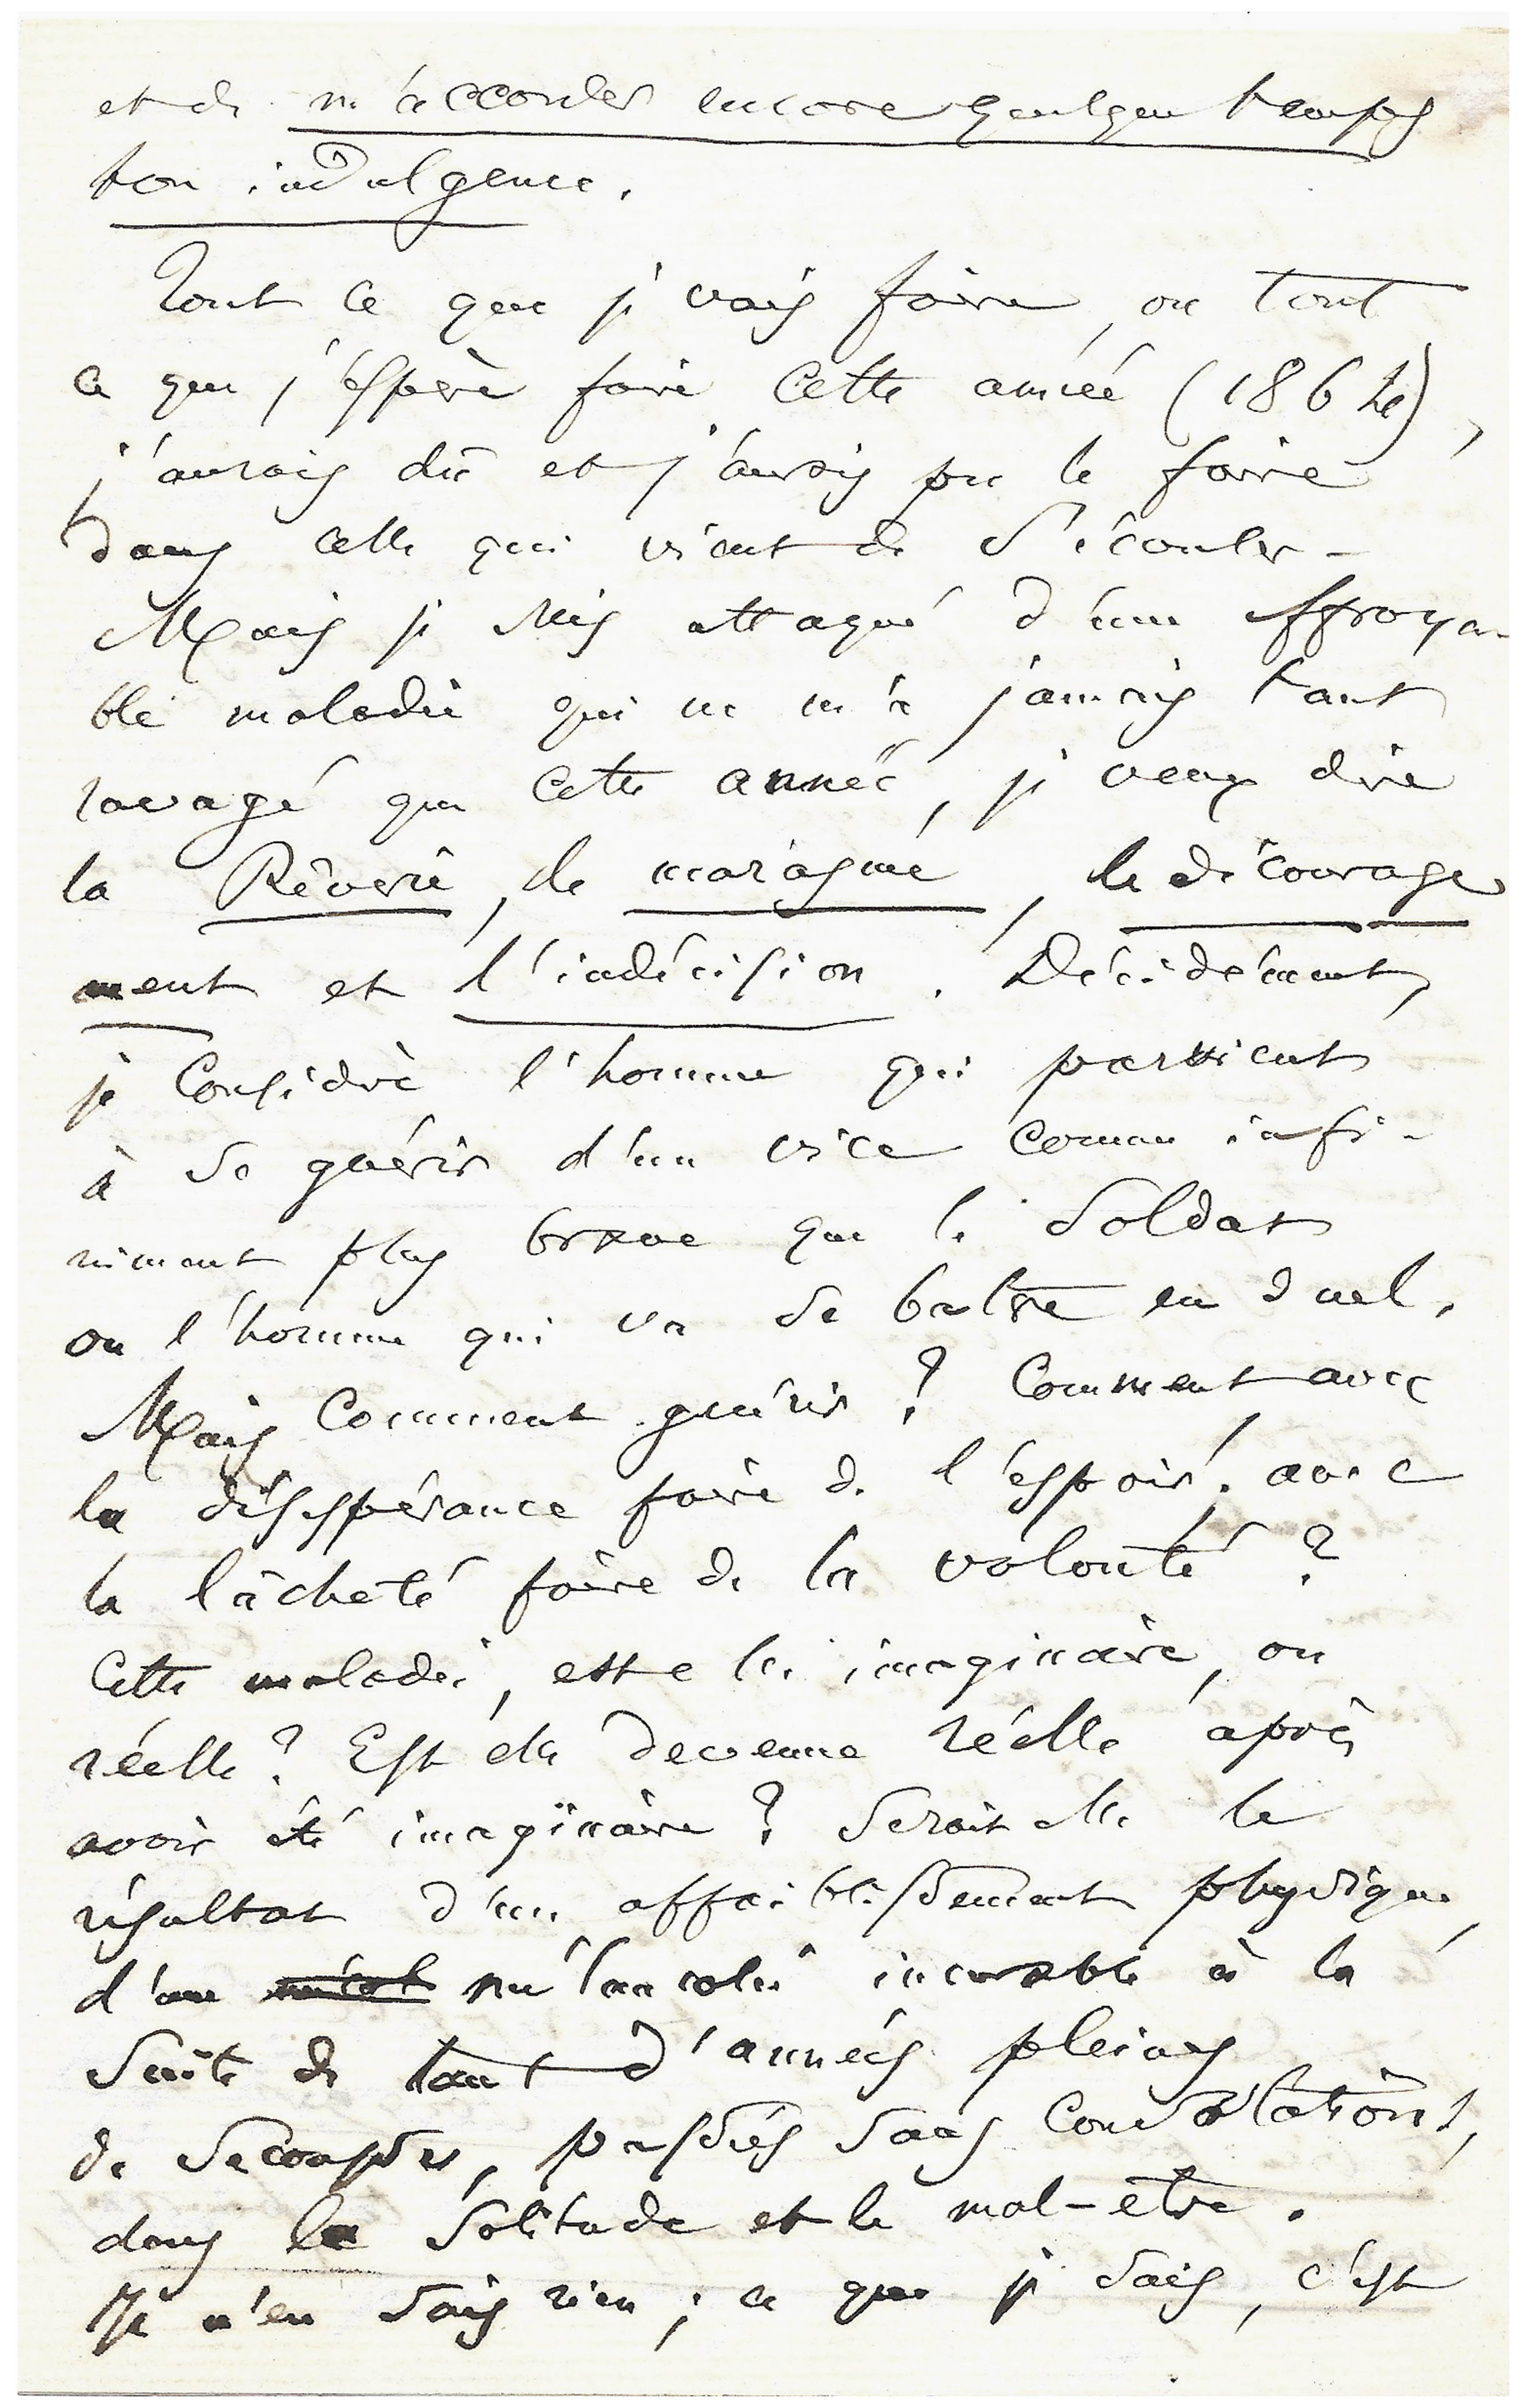 et de m'accorder encore quelque temps
ton indulgence.
Tout ce que je vais faire, ou tout
ce que j'espère faire cette année (1862),
j'aurais dû et j'aurais pu le faire
dans celle qui vient de s'écouler –
Mais je suis attaqué d'une effroya-
ble maladie qui ne m'a jamais tant
ravagé que cette année, je veux dire
la Rêverie, le marasme, le décourage
ment et l'indécision. Décidément,
je considère l'homme qui parvient
à se guérir d'un vice comme infi-
niment plus brave que le soldat
ou l'homme qui va se battre en duel.
Mais comment guérir ? Comment avec
la désespérance faire de l'espoir ; avec
la lâcheté faire de la volonté ?
Cette maladie, est-elle imaginaire, ou
réelle ? Est elle devenue réelle après
avoir été imaginaire ? Serait elle le
résultat d'un affaiblissement physique,
d'une mélancolie incurable à la
suite de tant d'années pleines
de secousses, passées sans consolations,
dans la solitude et le mal-être.
Je n'en sais rien ; ce que je sais, c'est